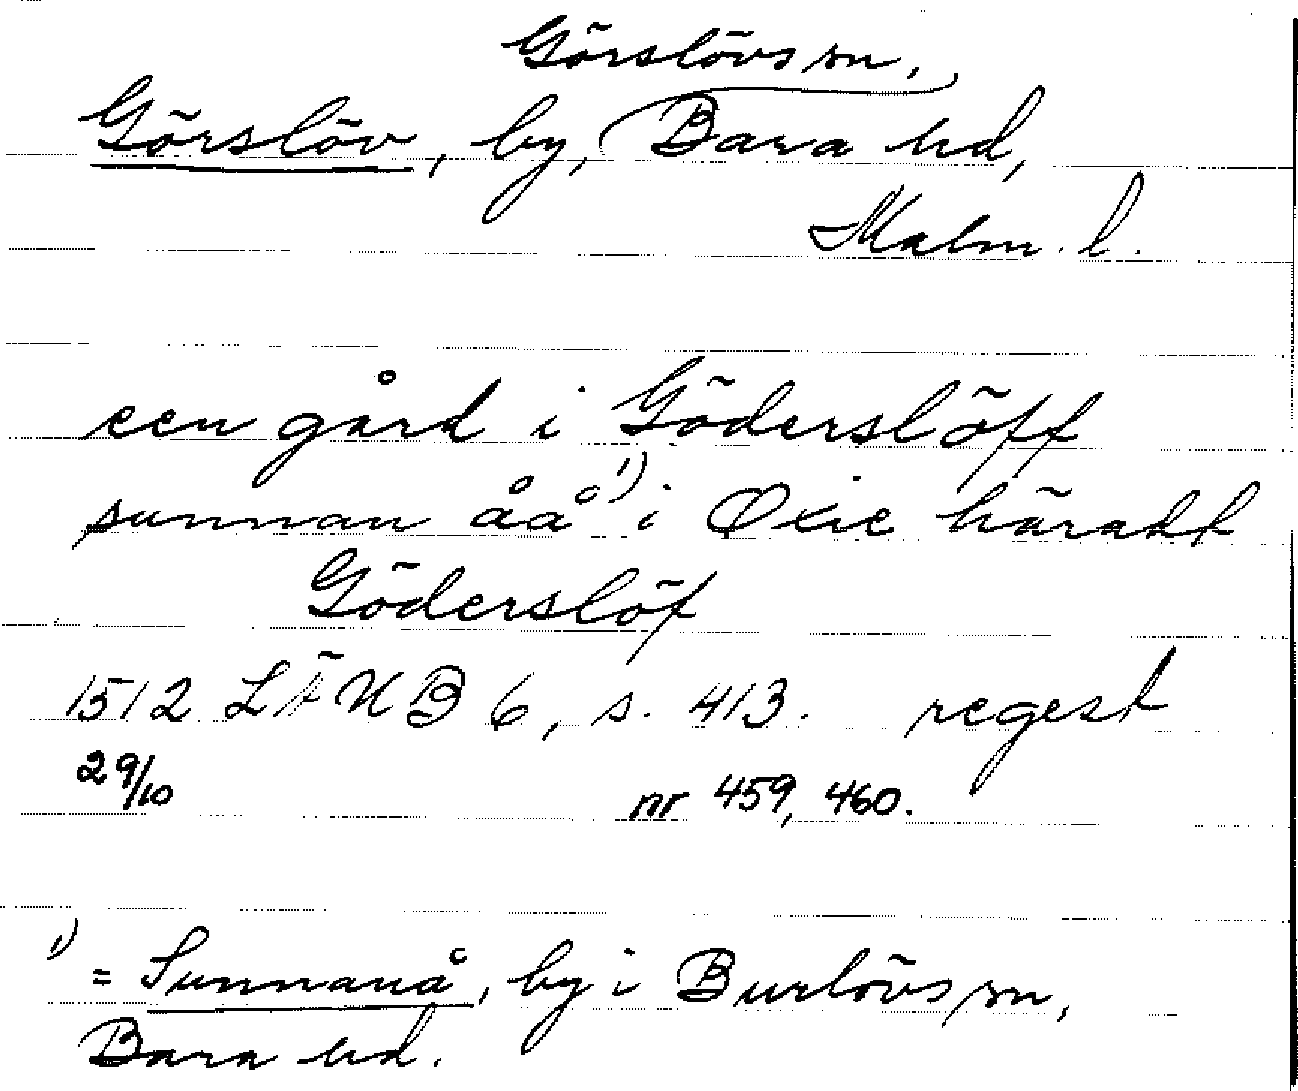 Görslövs sn,
Görslöv, by, Bara hd,
Malm. l.
een gård i Göderslöff
sunnan åå 1) i Oxie häratt
Göderslöf
1512 LÄUB 6, s. 413. regest
29/10 nr 459, 460.
1) = Sunnanå, by i Burlövs sn,
Bara hd.